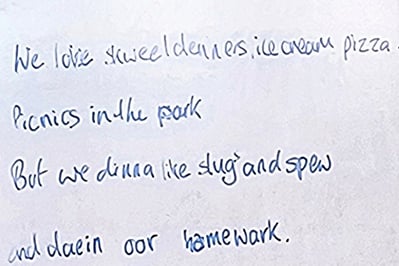 We love skweel denners, ice cream pizza.
Picnics in the park
But we dinna like slugs and spew
and daein oor hamewark.